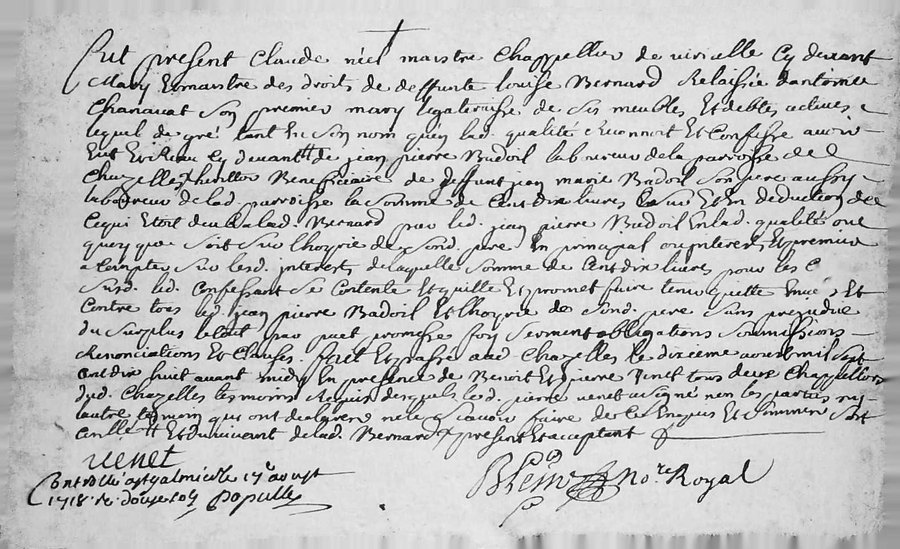 Fut présent Claude néel maistre Chappellier de viricelle Cy devant
Mary Et maistre des droits de deffunte Louise Bernard Relaissée dantoine
Chanavat Son premier mary légataresse de Ses meubles Et debtes actives
lequel de gré tant En Son nom quen lad. qualité Reconnoit Et Confesse avoir
Eut Et Reçu Cy devant de jean pierre Badoil laboureur de la parroisse de
Chazelles héritier Beneficiaire de deffunt jean marie Badoil Son pere aussy
laboureur de lad. parroisse la Somme de Cent dix livres Et En deduction de
Ce qui Etoit deu a lad. Bernard par led. jean pierre Badoil En lad. qualité ou
quoy que Soit Sur lhoyrie de Sond. pere En principal ou interest, Et premier
a Compter Sur lesd. interests de laquelle Somme de Cent dix livres pour les
Susd. led. Confessant Se Contente Et quitte Et promet faire tenir quitte Et
Contre tous led. jean pierre Badoil Et lhoyrie de Sond. pere Sans prejudice
du Surplus le tout par pact promesse foy Serment obligations Soumissions
Renonciations Et Clauses. fait Et passé aud Chazelles le dixieme aoust mil Sept
Cent dix huit avant midy En presence de Benoit Et pierre Venet tous deux Chappelliers
dud. Chazelles tesmoins Requis desquels led. pierre venet a Signé non les parties ny
lautre tesmoin qui ont declarés ne Scavoir faire de Ce Enquis Et Sommés
Et du vivant de lad. Bernard present Et acceptant
venet
Controllé a St galmier le 17e aoust
1718. R. douze sols populle
Notre Royal